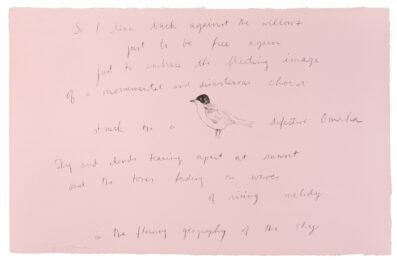 So I lean back against the willows
just to be free again
just to embrace the fleeting image
of a monumental and disastrous chord
struck on a defective Ocarina
Sky and clouds tearing apart at sunset
and the tones fading on waves
of rising melody
in the flowing geography of the sky